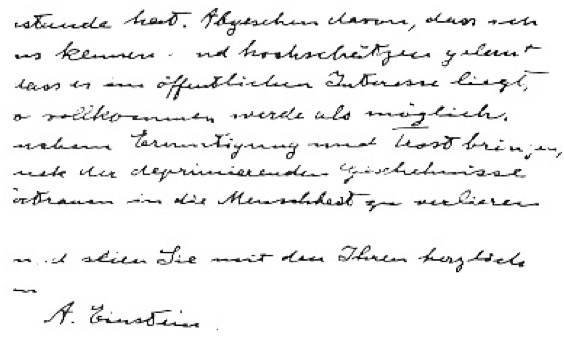 stunde hat. Abgesehen davon, dass ich
kennen und hochschätzen gelernt
dass es im öffentlichen Interesse liegt,
so vollkommen werde als möglich.
Ermutigung und Trost bringen,
der deprimierenden Geschehnisse
Vertrauen in die Menschheit zu verlieren
und seien Sie mit den Ihren herzlich
A. Einstein.